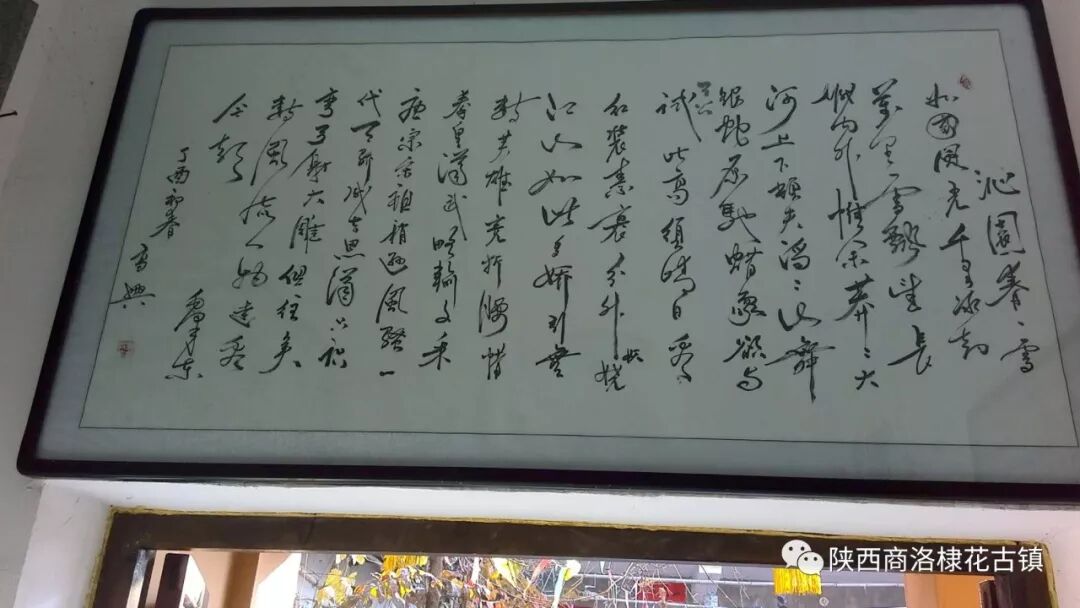 沁園春·雪
北國風光千里冰封
萬里雪飄望長
城内外惟余莽々大
河上下頓失滔々山舞
銀蛇原馳蜡象欲与天公
試比高須晴日看
红装素裹分外妖娆
江山如此多娇引無
數英雄竞折腰惜
秦皇漢武略輸文采
唐宗宋祖稍遜風騷一
代天骄成吉思漢只识
彎弓射大雕俱往矣
數風流人物还看
今朝
丁酉初春
陕西商洛棣花古镇